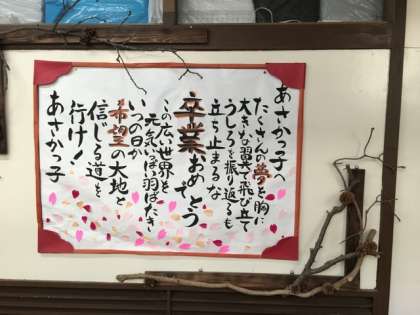 あさかっ子へ
たくさんの夢を胸に
大きな翼で飛び立て
うしろを振り返るも
立ち止まるな
卒業おめでとう
この広い世界を
元気いっぱい羽ばたき
いつの日か
希望の大地と
信じる道を
行け!
あさかっ子